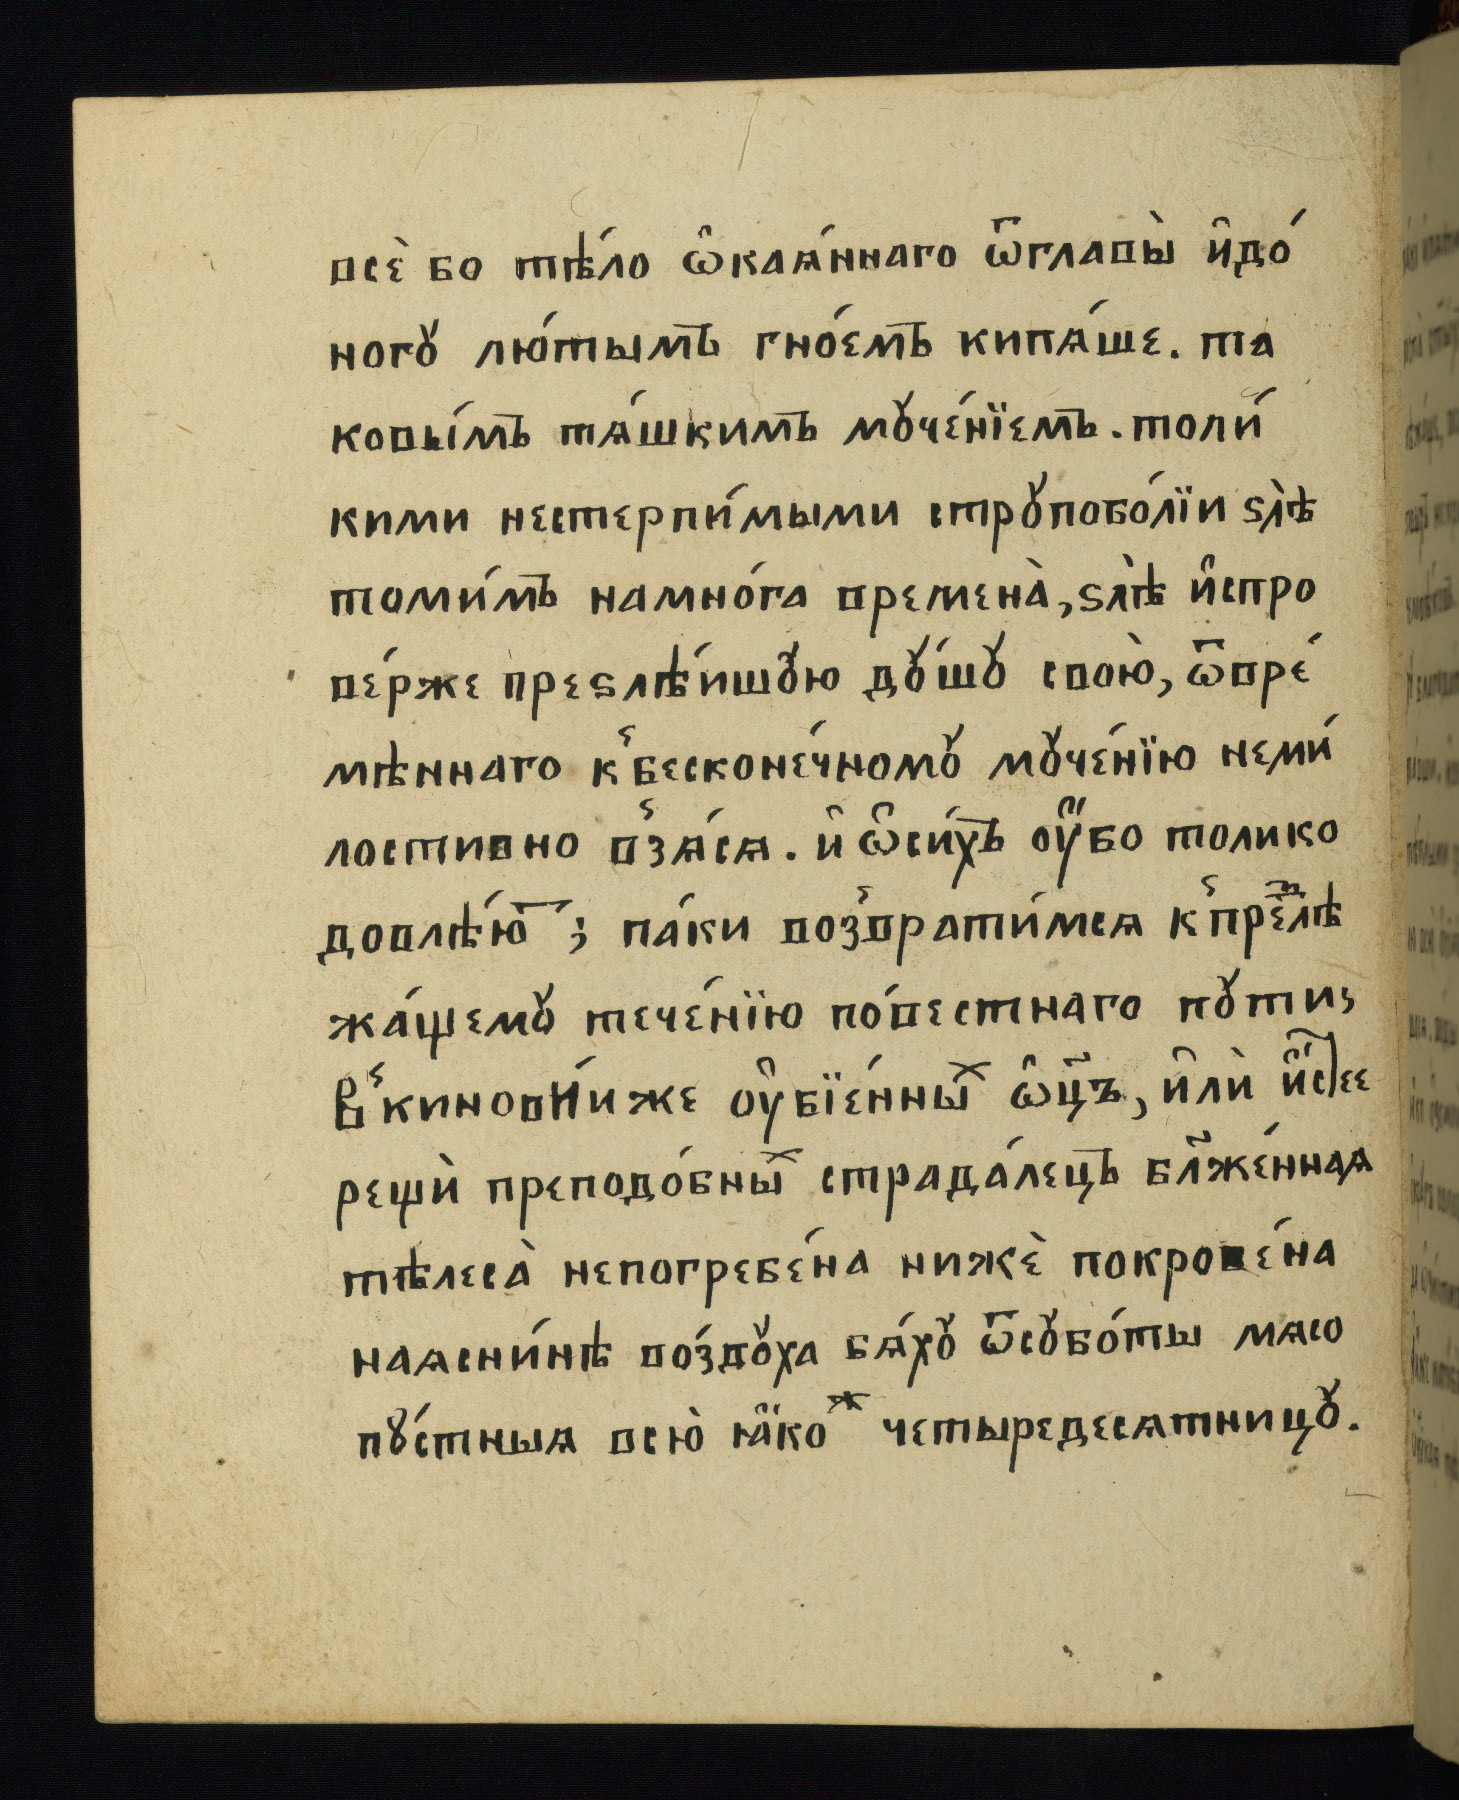 всѐ бо тѣ́ло ѡ҆каѧ́ннаго ѿглавы̀ и҆до́
ногꙋ лю́тымъ гно́емъ кипѧ́ше. та
ковы́мъ тѧ́шкимъ мꙋче́нїемъ. толи́
кими нестерпи́мыми стрꙋпобо́лїи ѕлѣ̀
томи́мъ намно́га времена̀, ѕлѣ̀ и҆спро
ве́рже преѕлѣ́ишꙋю дꙋ́шꙋ свою̀, ѿвре́
мѣннаго к̾бесконе́чномꙋ мꙋче́нїю неми́
лостивно в̾зѧ́сѧ. и҆ ѡ҆си́хъ ᲂу҆́бо толико
довлѣ́юⷮ; па́ки воз̾врати́мсѧ к̾преⷣлѣ
жа́щемꙋ тече́нїю по́вестнаго пꙋти,
В̾киновїи́ иже ᲂу҆бїе́нныⷯ ѡ҆ц҃ъ, и҆лѝ и҆́с҃ее
рещѝ преподо́бныⷯ страда́лецъ бл҃же́нная
тѣлеса̀ непогребе́на нижѐ покрове́на
наѧсни́нѣ во́здꙋха бѧ́хꙋ ѿсꙋбо́ты мѧсо
пꙋ́стныѧ всю̀ ꙗ҆́коⷤ четыредесѧтницꙋ.